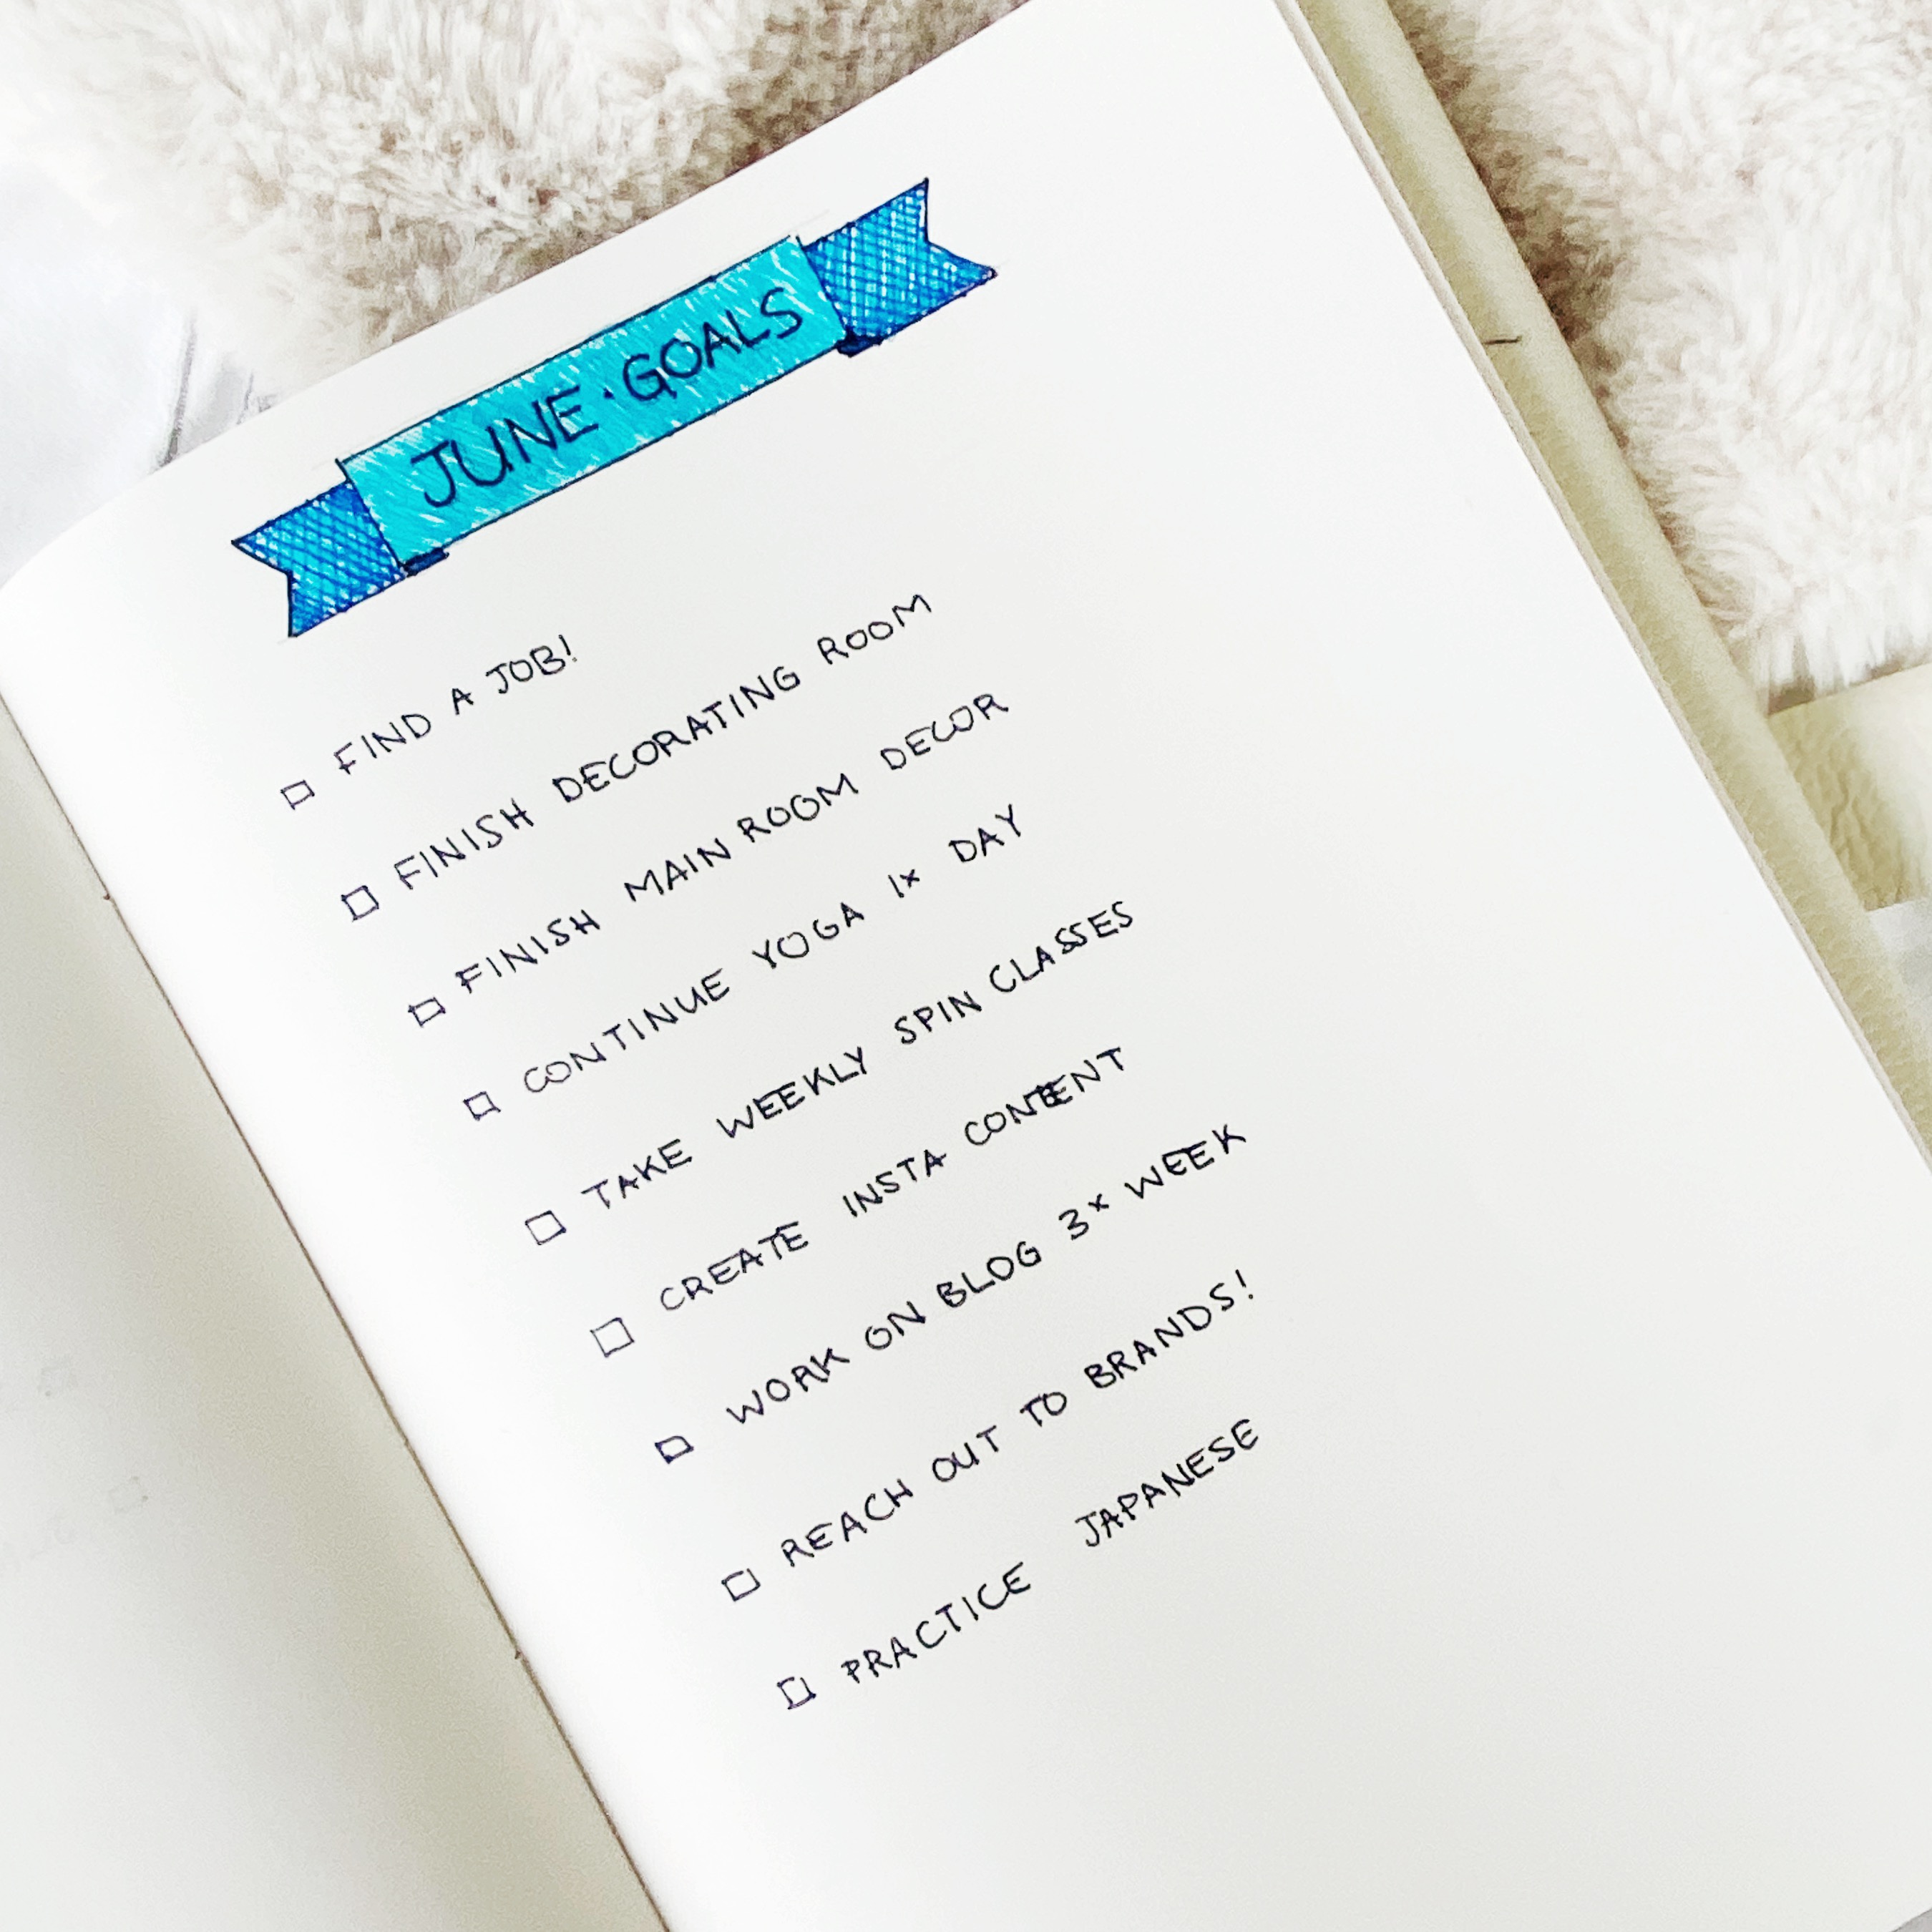 JUNE · GOALS
FIND A JOB!
FINISH DECORATING ROOM
FINISH MAIN ROOM DECOR
CONTINUE YOGA 1x DAY
TAKE WEEKLY SPIN CLASSES
CREATE INSTA CONTENT
WORK ON BLOG 3x WEEK
REACH OUT TO BRANDS!
PRACTICE JAPANESE